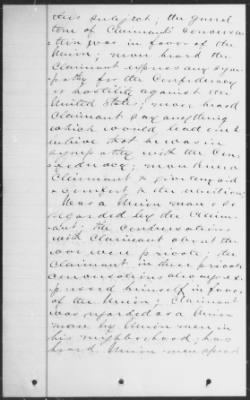 this subject; the general
tone of Claimant's conversa-
tion was in favor of the
Union; never heard the
Claimant express any sym-
pathy for the Confederacy
or hostility against the
United States; never heard
Claimant say anything
which would lead one to
believe that he was in
sympathy with the Con-
federacy; never knew
Claimant to give any aid
or comfort to the rebellion;
Was a Union man & so
regarded by the Claim-
ant; the conversations
with Claimant about the
war were private; the
Claimant in these private
conversations always ex-
pressed himself in favor
of the Union; Claimant
was regarded as a Union
man by Union men in
his neighborhood; has
heard Union men speak